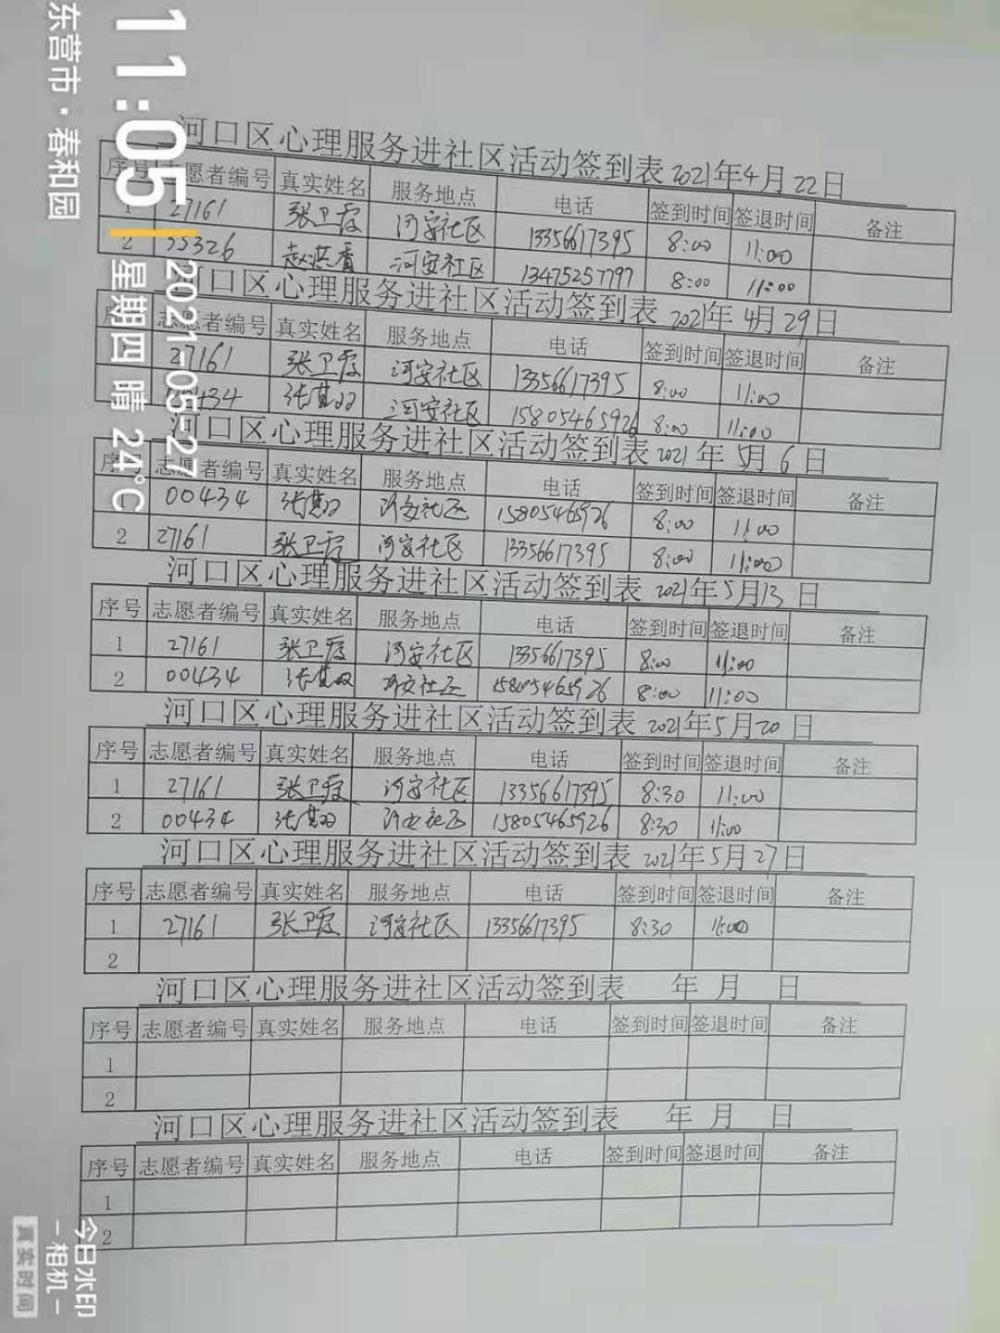 11:05
东营市·春和园
2021-05-27
星期四 晴 24℃
河口区心理服务进社区活动签到表 2021年4月22日
序号 志愿者编号 真实姓名 服务地点 电话 签到时间 签退时间 备注
1 27161 张卫霞 河安社区 13356617395 8:00 11:00
2 55326 赵洪香 河安社区 13475257797 8:00 11:00
河口区心理服务进社区活动签到表 2021年4月29日
志愿者编号 真实姓名 服务地点 电话 签到时间 签退时间 备注
27161 张卫霞 河安社区 13356617395 8:00 11:00
00434 河安社区 15805465926 8:00 11:00
河口区心理服务进社区活动签到表 2021年5月6日
序号 志愿者编号 真实姓名 服务地点 电话 签到时间 签退时间 备注
1 00434 河安社区 15805465926 8:00 11:00
2 27161 张卫霞 河安社区 13356617395 8:00 11:00
河口区心理服务进社区活动签到表 2021年5月13日
序号 志愿者编号 真实姓名 服务地点 电话 签到时间 签退时间 备注
1 27161 张卫霞 河安社区 13356617395 8:00 11:00
2 00434 河安社区 15805465926 8:00 11:00
河口区心理服务进社区活动签到表 2021年5月20日
序号 志愿者编号 真实姓名 服务地点 电话 签到时间 签退时间 备注
1 27161 张卫霞 河安社区 13356617395 8:30 11:00
2 00434 河安社区 15805465926 8:30 11:00
河口区心理服务进社区活动签到表 2021年5月27日
序号 志愿者编号 真实姓名 服务地点 电话 签到时间 签退时间 备注
1 27161 张卫霞 河安社区 13356617395 8:30 11:00
2
河口区心理服务进社区活动签到表 年 月 日
序号 志愿者编号 真实姓名 服务地点 电话 签到时间 签退时间 备注
1
2
河口区心理服务进社区活动签到表 年 月 日
序号 志愿者编号 真实姓名 服务地点 电话 签到时间 签退时间 备注
1
2
今日水印
-相机-
真实时间